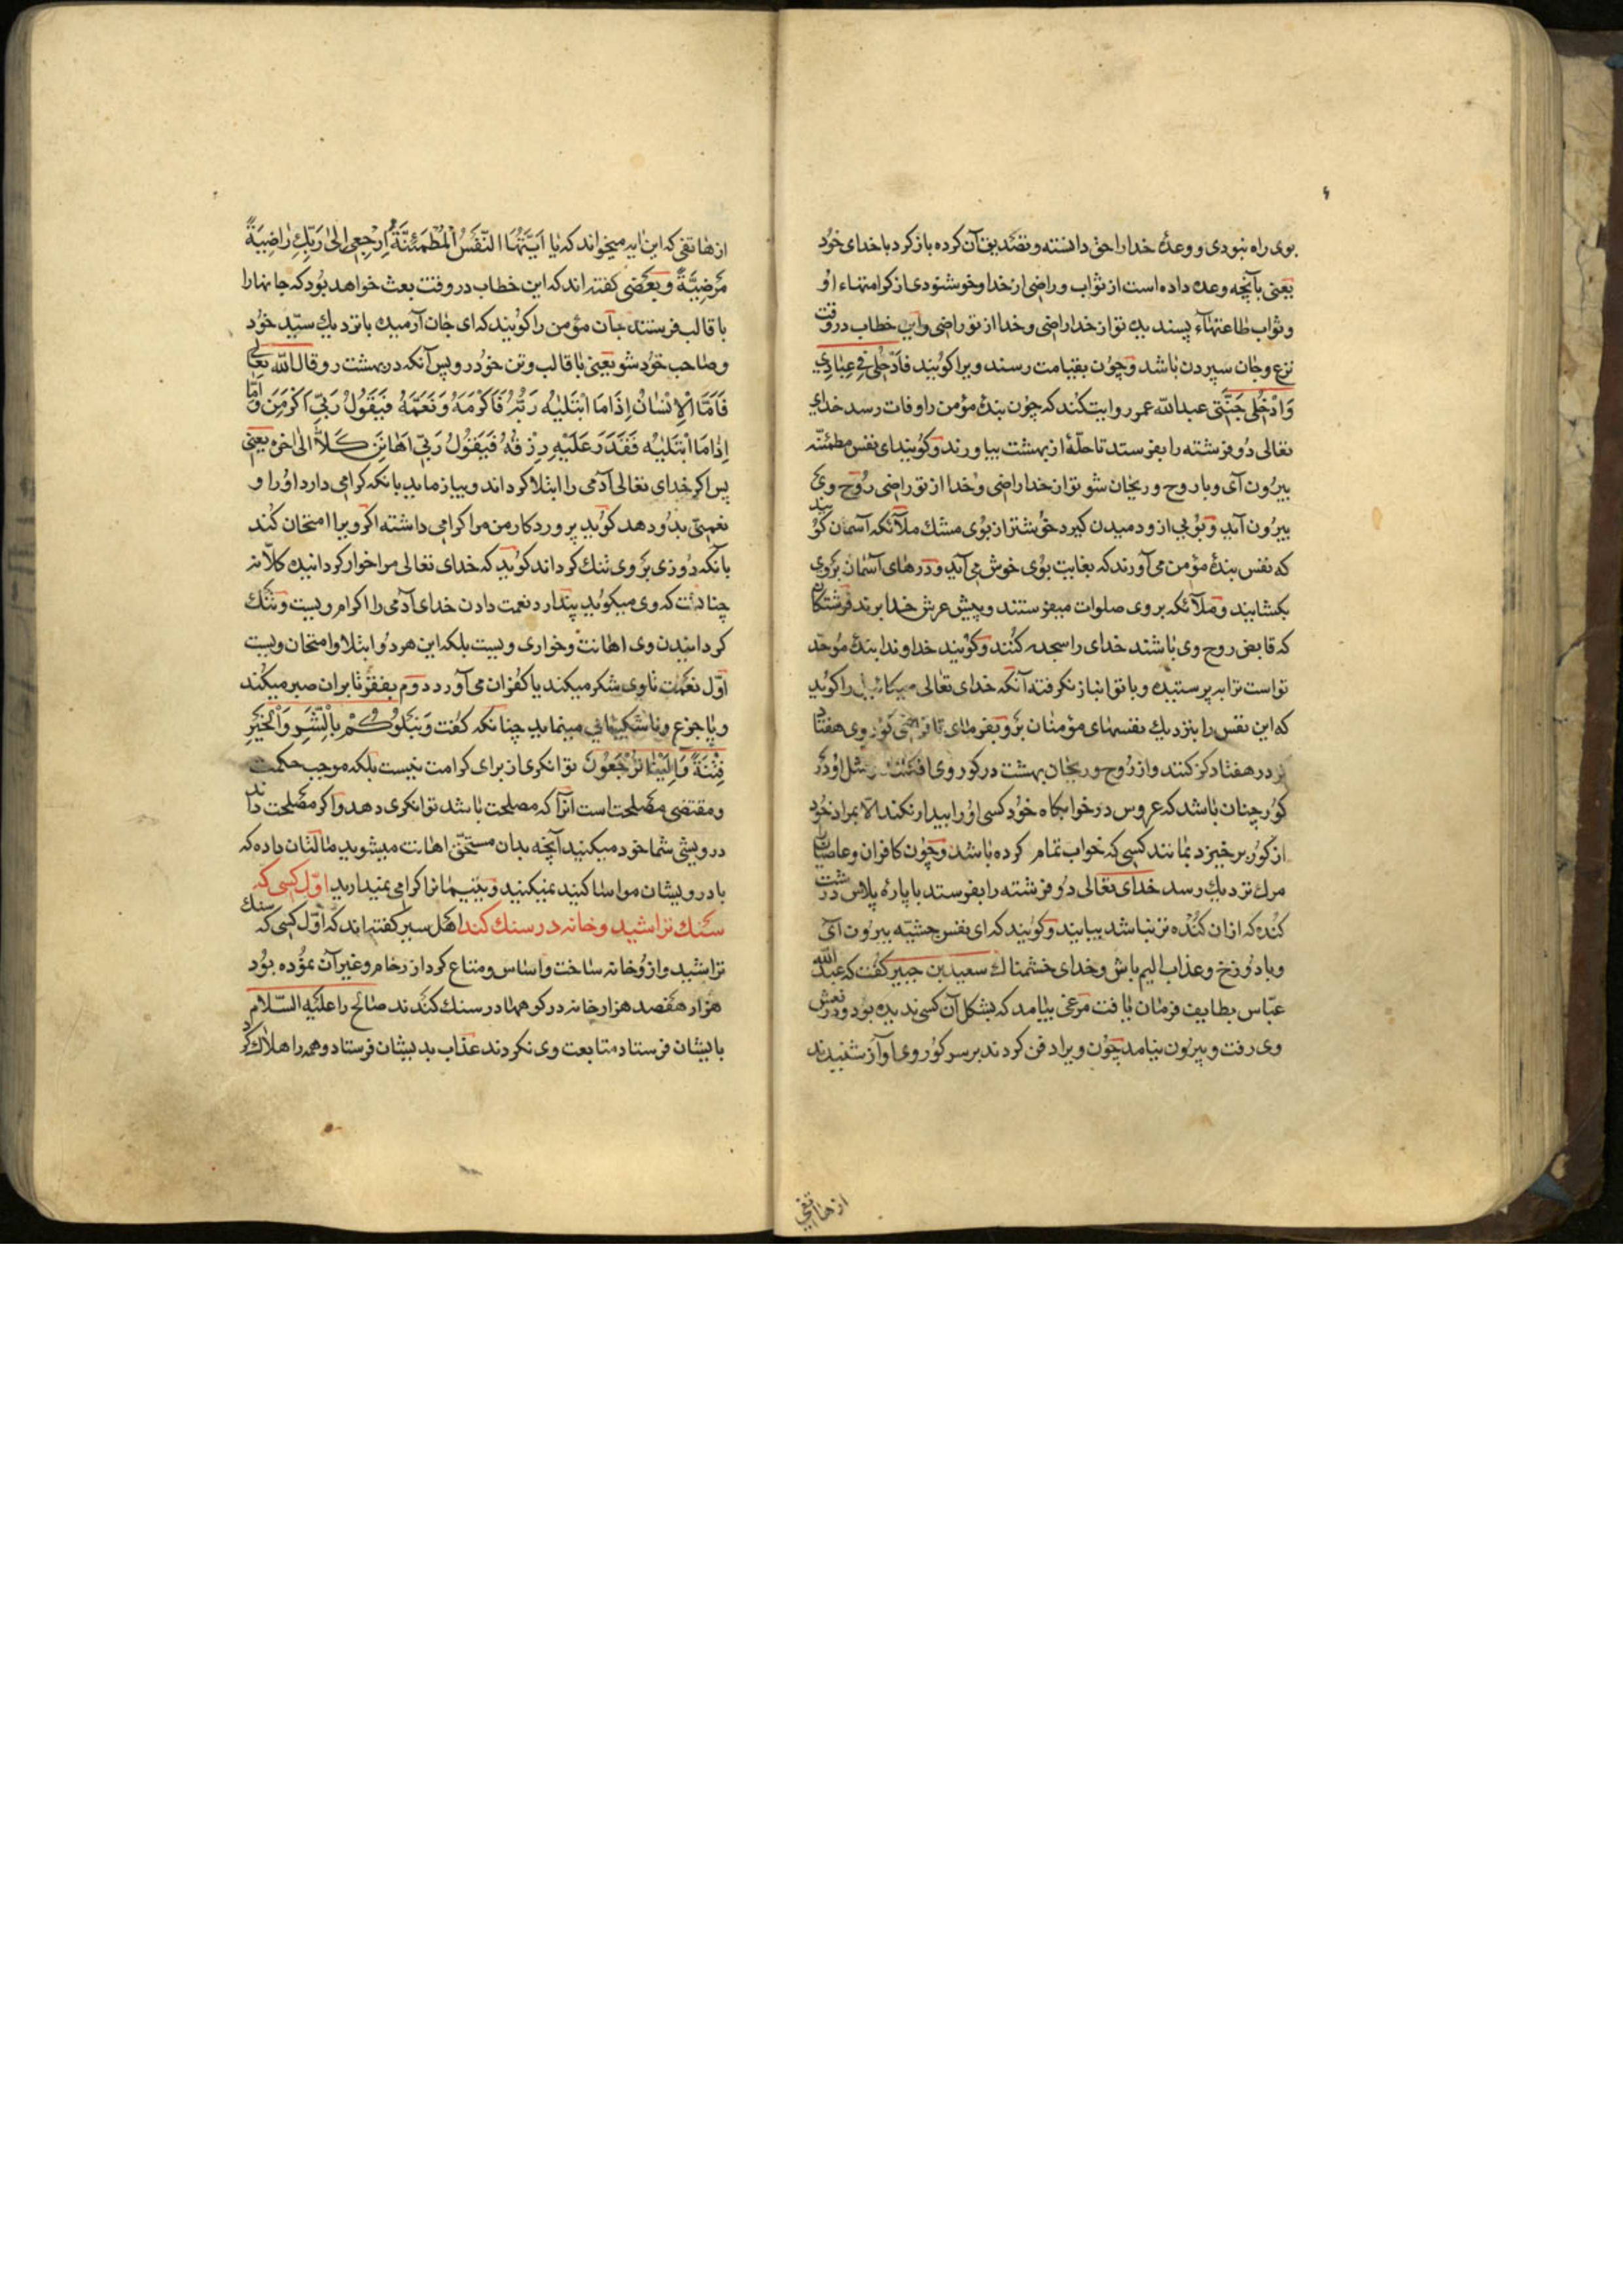 بوی راه نبودی و وعدهٔ خدا را حق دانسته و تصدیق آن کرده باز کرد با خدای خود
یعنی بآنچه وعده داده است از ثواب و راضی از خدا و خوشنودی از کرامتهاء او
و ثواب طاعتهاء پسندیده تو از خدا راضی و خدا از تو راضی و این خطاب در وقت
نزع و جان سپردن باشد و چون بقیامت رسند ویرا کویند فَادْخُلِی فِی عِبَادِی
وَادْخُلِی جَنَّتِی عبدالله عمر روایت کند که چون بندهٔ مؤمن را وفات رسد خدای
تعالی دو فرشته را بفرستد تا حلّهٔ از بهشت بیاورند و کویند ای نفس مطمئنّه
بیرون آی و با روح و ریحان شو تو از خدا راضی و خدا از تو راضی روح وی
بیرون آید و بویی از و دمیدن کیرد خوشتر از بوی مشك ملآئکه آسمان کویند
که نفس بندهٔ مؤمن می آورند که بغایت بوی خوش می آید و درهای آسمان بروی
بکشایند و ملآئکه بروی صلوات میفرستند و پیش عرش خدا برند فرشتکان
که قابض روح وی باشند خدای را سجده کنند و کویند خداوندا بندهٔ موحّد
تو است ترا به پرستیده و با تو انباز نکرفته آنکه خدای تعالی میکائیل را کوید
که این نفس را بنزدیك نفسهای مؤمنان بر و بفرمای تا فراخی کور وی هفتاد
کز در هفتاد کز کنند و از روح و ریحان بهشت در کور وی افکنند مثل او در
کور چنان باشد که عروس در خوابکاه خود کسی او را بیدار نکند الّا بمراد خود
از کور برخیزد بمانند کسی که خواب تمام کرده باشد و چون کافران و عاصیان
مرك نزدیك رسد خدای تعالی دو فرشته را بفرستد با پارهٔ پلاس درشت
کنده که از ان کنده تر نباشد بیایند و کویند که ای نفس خبیثه بیرون آی
و با دوزخ و عذاب الیم باش و خدای خشمناك سعید بن جبیر کفت که عبد الله
عبّاس بطایف فرمان یافت مرغی بیامد که بشکل آن کسی ندیده بود و در نعش
وی رفت و بیرون نیامد چون ویرا دفن کردند بر سر کور وی آواز شنیدند
از هاتفی
از هاتفی که این ایه میخواند که یَا اَیَّتُهَا النَّفْسُ الْمُطْمَئِنَّةُ ارْجِعِی اِلٰی رَبِّكِ رَاضِیَةً
مَرْضِیَّةً و بعضی کفته اند که این خطاب در وقت بعث خواهد بود که جانها را
با قالب فرستند جان مؤمن را کویند که ای جان آرمیده با نزدیك سیّد خود
و صاحب خود شو یعنی با قالب و تن خود رو پس آنکه در بهشت رو قال الله تعالی
فَاَمَّا الْاِنْسَانُ اِذَا مَا ابْتَلٰیهُ رَبُّهُ فَاَکْرَمَهُ وَنَعَّمَهُ فَیَقُولُ رَبِّی اَکْرَمَنِ وَاَمَّا
اِذَا مَا ابْتَلٰیهُ فَقَدَرَ عَلَیْهِ رِزْقَهُ فَیَقُولُ رَبِّی اَهَانَنِ کَلَّا الی اخره یعنی
پس اکر خدای تعالی آدمی را ابتلا کرداند و بیازماید بانکه کرامی دارد او را و
نعمتی بدو دهد کوید پروردکار من مرا کرامی داشته اکر ویرا امتحان کند
بآنکه روزی بروی تنك کرداند کوید که خدای تعالی مرا خوار کردانیده کلّا نه
چنانست که وی میکوید پندارد نعمت دادن خدای آدمی را اکرام ویست و تنك
کردانیدن وی اهانت و خواری ویست بلکه این هر دو ابتلا و امتحان ویست
اوّل نعمت تا وی شکر میکند یا کفران می آورد دوم بفقر تا بران صبر میکند
و یا جزع و ناشکیبائی مینماید چنانکه کفت وَنَبْلُوکُمْ بِالشَّرِّ وَالْخَیْرِ
فِتْنَةً وَاِلَیْنَا تُرْجَعُونَ توانکری از برای کرامت نیست بلکه موجب حکمت
و مقتضی مصلحت است انرا که مصلحت باشد توانکری دهد و اکر مصلحت داند
درویشی شما خود میکنید آنچه بدان مستحقّ اهانت میشوید مالتان داده که
با درویشان مواسا کنید نمیکنید و یتیمانرا کرامی نمیدارید اوّل کسی که
سنك تراشید و خانه در سنك کند اهل سیر کفته اند که اوّل کسی که سنك
تراشید و از و خانه ساخت و اساس و متاع کرد از رخام و غیر آن ثمود بود
هزار هفصد هزار خانه در کوهها در سنك کندند صالح را علیه السّلام
بایشان فرستاد متابعت وی نکردند عذاب بدیشان فرستاد و همه را هلاك کرد